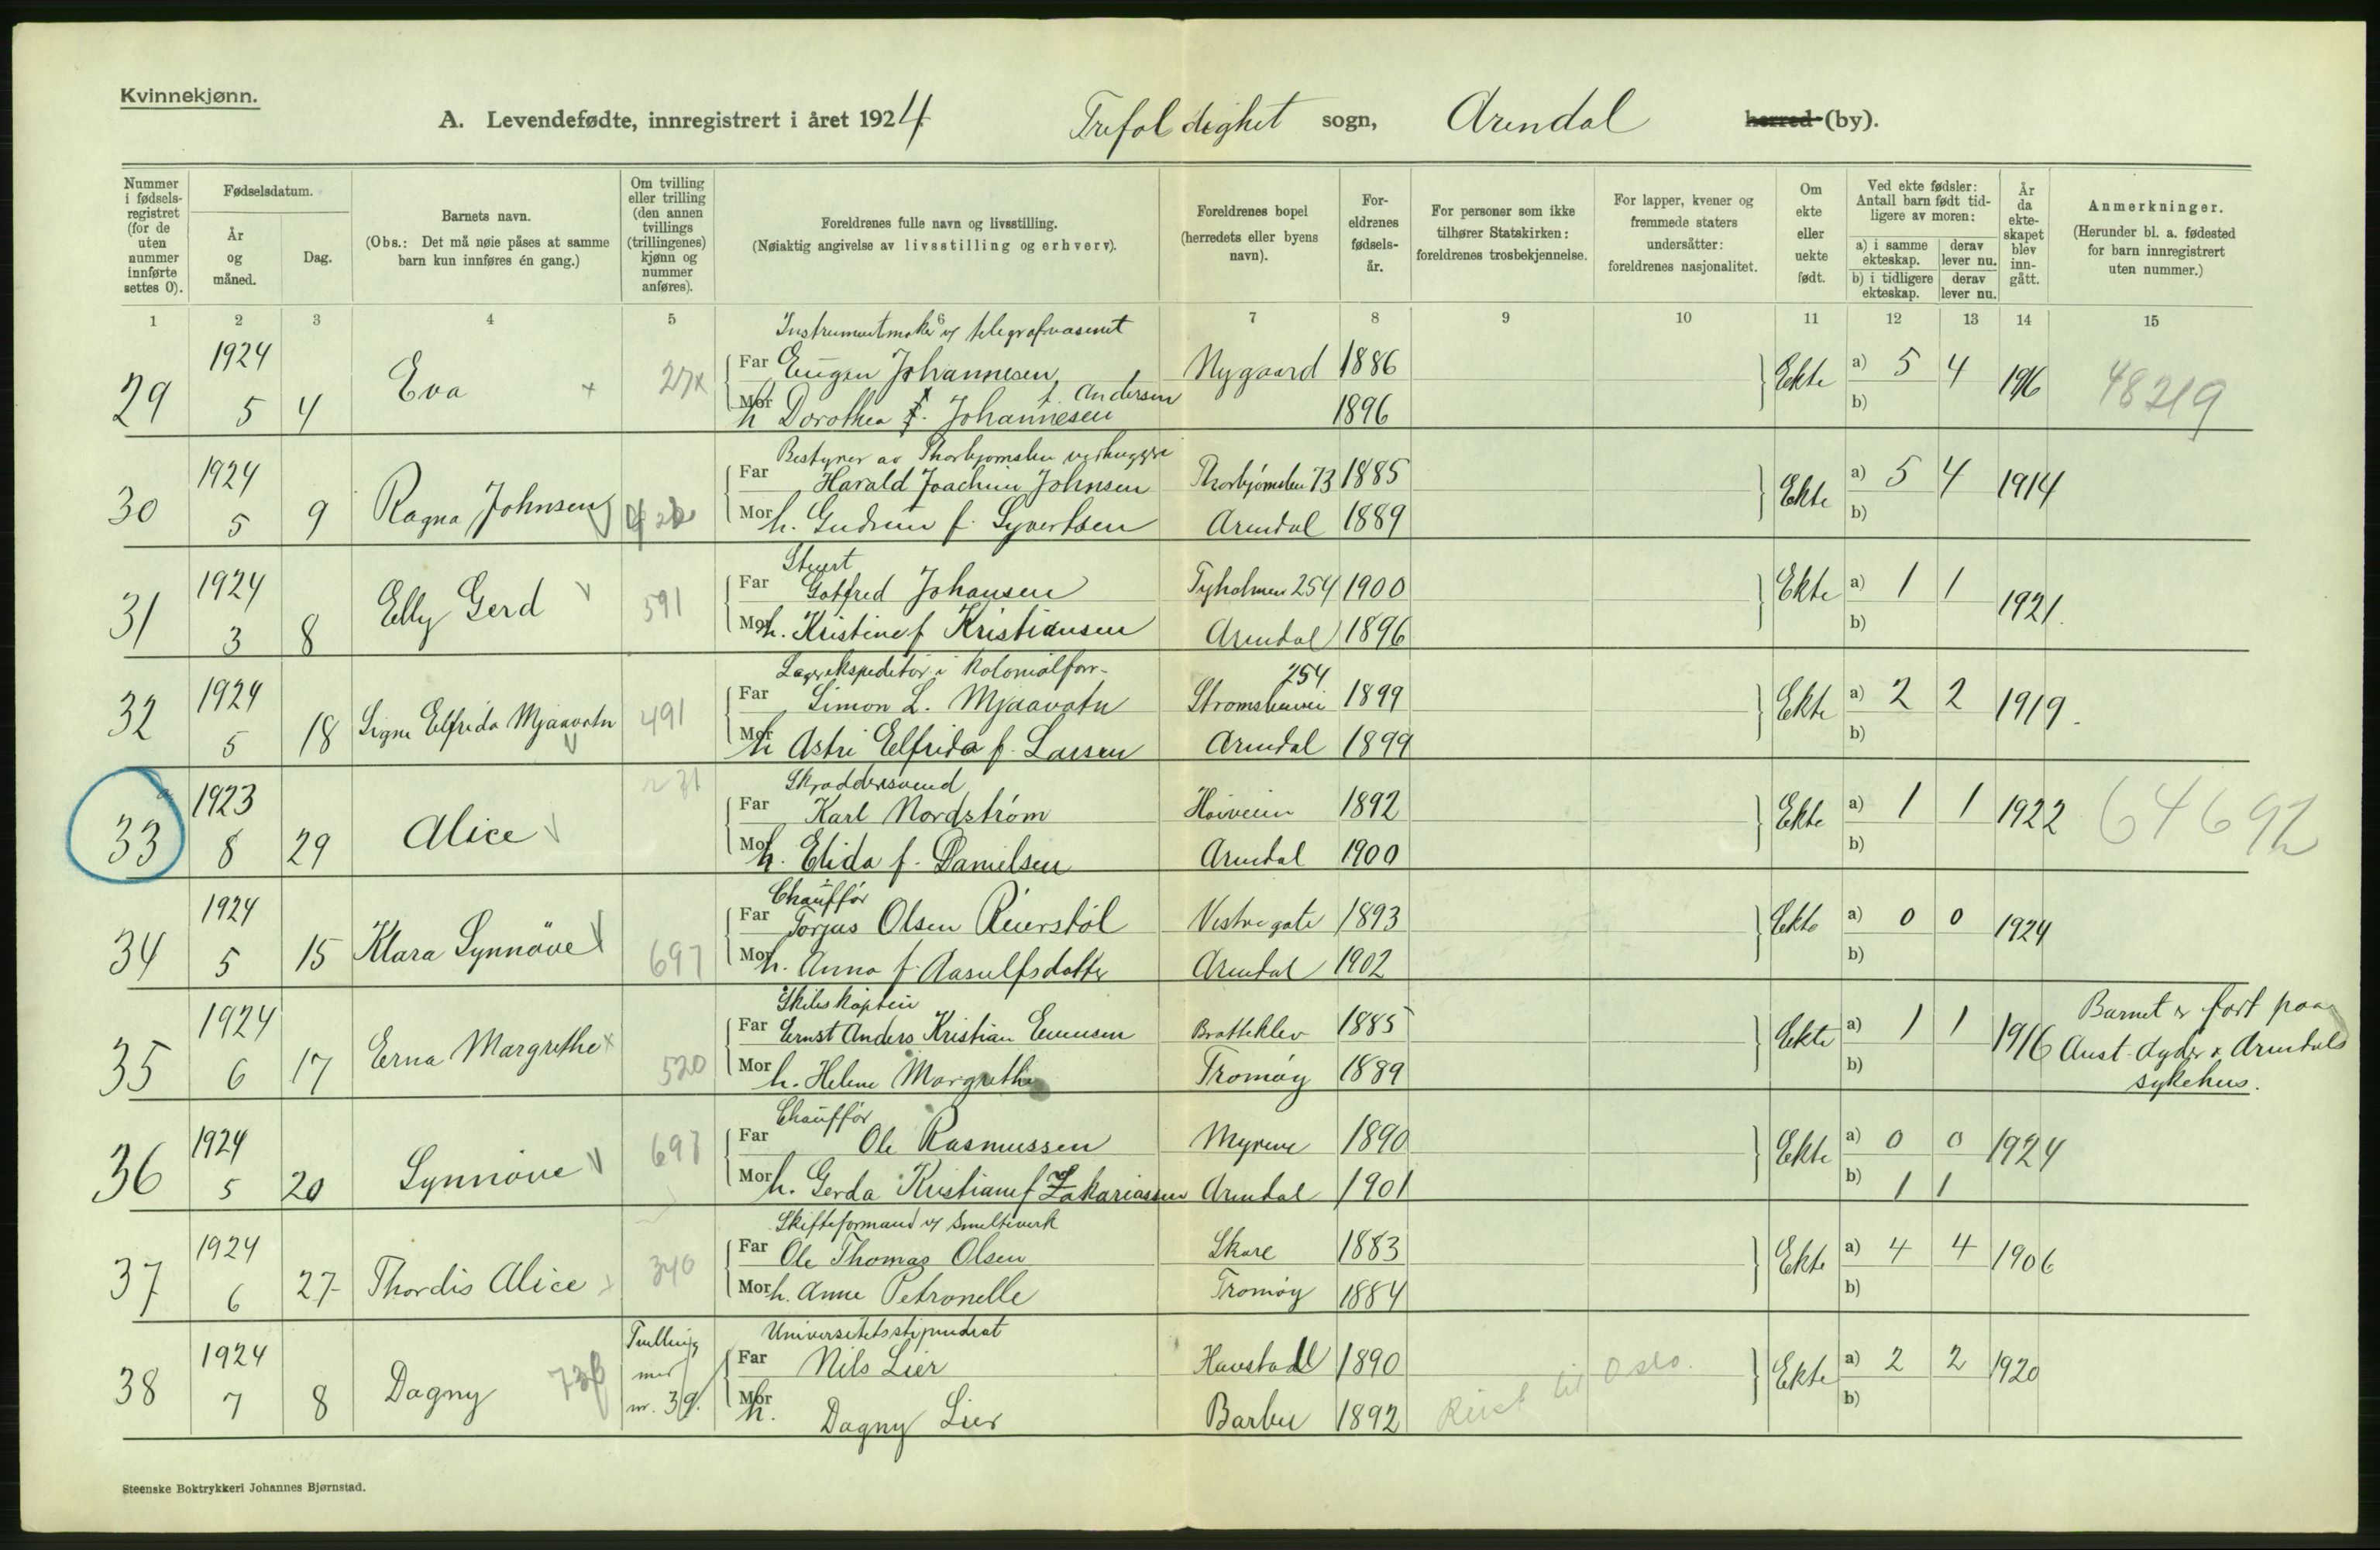 Kvinnekjønn.
A. Levendefødte, innregistrert i året 1924. Trefoldighet sogn, Arendal herred (by).
Nummer i fødsels-registret (for de uten nummer innførte settes 0).
Fødselsdatum.
År og måned.
Dag.
Barnets navn.
(Obs.: Det må nøie påses at samme barn kun innføres én gang.)
Om tvilling eller trilling (den annen tvillings (trillingenes) kjønn og nummer anføres).
Foreldrenes fulle navn og livsstilling.
(Nøiaktig angivelse av livsstilling og erhverv).
Foreldrenes bopel (herredets eller byens navn).
For-eldrenes fødsels-år.
For personer som ikke tilhører Statskirken: foreldrenes trosbekjennelse.
For lapper, kvener og fremmede staters undersåtter: foreldrenes nasjonalitet.
Om ekte eller uekte født.
Ved ekte fødsler: Antall barn født tid-ligere av moren:
a) i samme ekteskap.
derav lever nu.
b) i tidligere ekteskap.
derav lever nu.
År da ekte-skapet blev inn-gått.
Anmerkninger.
(Herunder bl. a. fødested for barn innregistrert uten nummer.)
1 2 3 4 5 6 7 8 9 10 11 12 13 14 15
Instrumentmaker v/ telegrafvæsenet
29 1924 5 4 Eva 27x Far Eugen Johannesen Nygaard 1886 Ekte a) 5 4 1916 48219
f. Andersen
Mor h Dorothea Johannesen 1896 b)
Bestyrer av Thorbjørnsbu vedhuggeri
30 1924 5 9 Ragna Johnsen Far Harald Joachim Johnsen Thorbjørnsbu 73 1885 Ekte a) 5 4 1914
Mor h. Gudrun f. Syvertsen Arendal 1889 b)
Stuert
31 1924 3 8 Elly Gerd 591 Far Gotfred Johansen Tyholmen 254 1900 Ekte a) 1 1 1921.
Mor h. Kristine f Kristiansen Arendal 1896 b)
Lagerekspeditør i kolonialforr.
254
32 1924 5 18 Signe Elfrida Mjaavatn 491 Far Simon L. Mjaavatn Strømsbuvei 1899 Ekte a) 2 2 1919.
Mor h Astri Elfrida f. Larsen Arendal 1899 b)
Skreddersvend
33 1923 8 29 Alice Far Karl Nordstrøm Høiveien 1892 Ekte a) 1 1 1922 64692
Mor h. Elida f. Danielsen Arendal 1900 b)
Chauffør
34 1924 5 15 Klara Synnöve 697 Far Torjus Olsen Reierstøl Vestregate 1893 Ekte a) 0 0 1924
Mor h. Anna f. Aasulfsdatter Arendal 1902 b)
Skibskaptein
35 1924 6 17 Erna Margrethe 520 Far Ernst Anders Kristian Evensen Bratteklev 1885 Ekte a) 1 1 1916
Mor h. Helene Margrethe Tromøy 1889 b)
Barnet er født paa
Aust-Agder & Arendals
sykehus.
Chauffør
36 1924 5 20 Synnöve 697 Far Ole Rasmussen Myrene 1890 Ekte a) 0 0 1924
Mor h. Gerda Kristiane f Zakariassen Arendal 1901 b) 1 1
Skifteformand v/ Smelteverk
37 1924 6 27 Thordis Alice 340 Far Ole Thomas Olsen Skare 1883 Ekte a) 4 4 1906
Mor h. Anne Petronelle Tromøy 1884 b)
Universitetsstipendiat
38 1924 7 8 Dagny Tvilling med nr. 39. Far Nils Lier Havstad 1890 Ekte a) 2 2 1920
Mor h. Dagny Lier Barbu 1892 Reist til Oslo. b)
Steenske Boktrykkeri Johannes Bjørnstad.